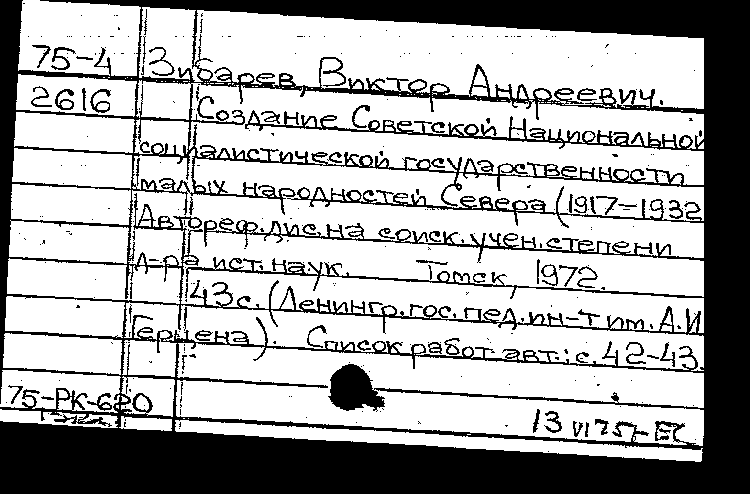 75-4 Зибарев, Виктор Андреевич.
2616 Создание Советской Национальной
социалистической государственности
малых народностей Севера (1917-1932
Автореф.дис.на соиск.учен.степени
д-ра ист.наук. Томск, 1972.
43с. (Ленингр.гос.пед.ин-т им.А.И
Герцена). Список работ авт.: с.42-43.
75-РК-620
13 VI 75